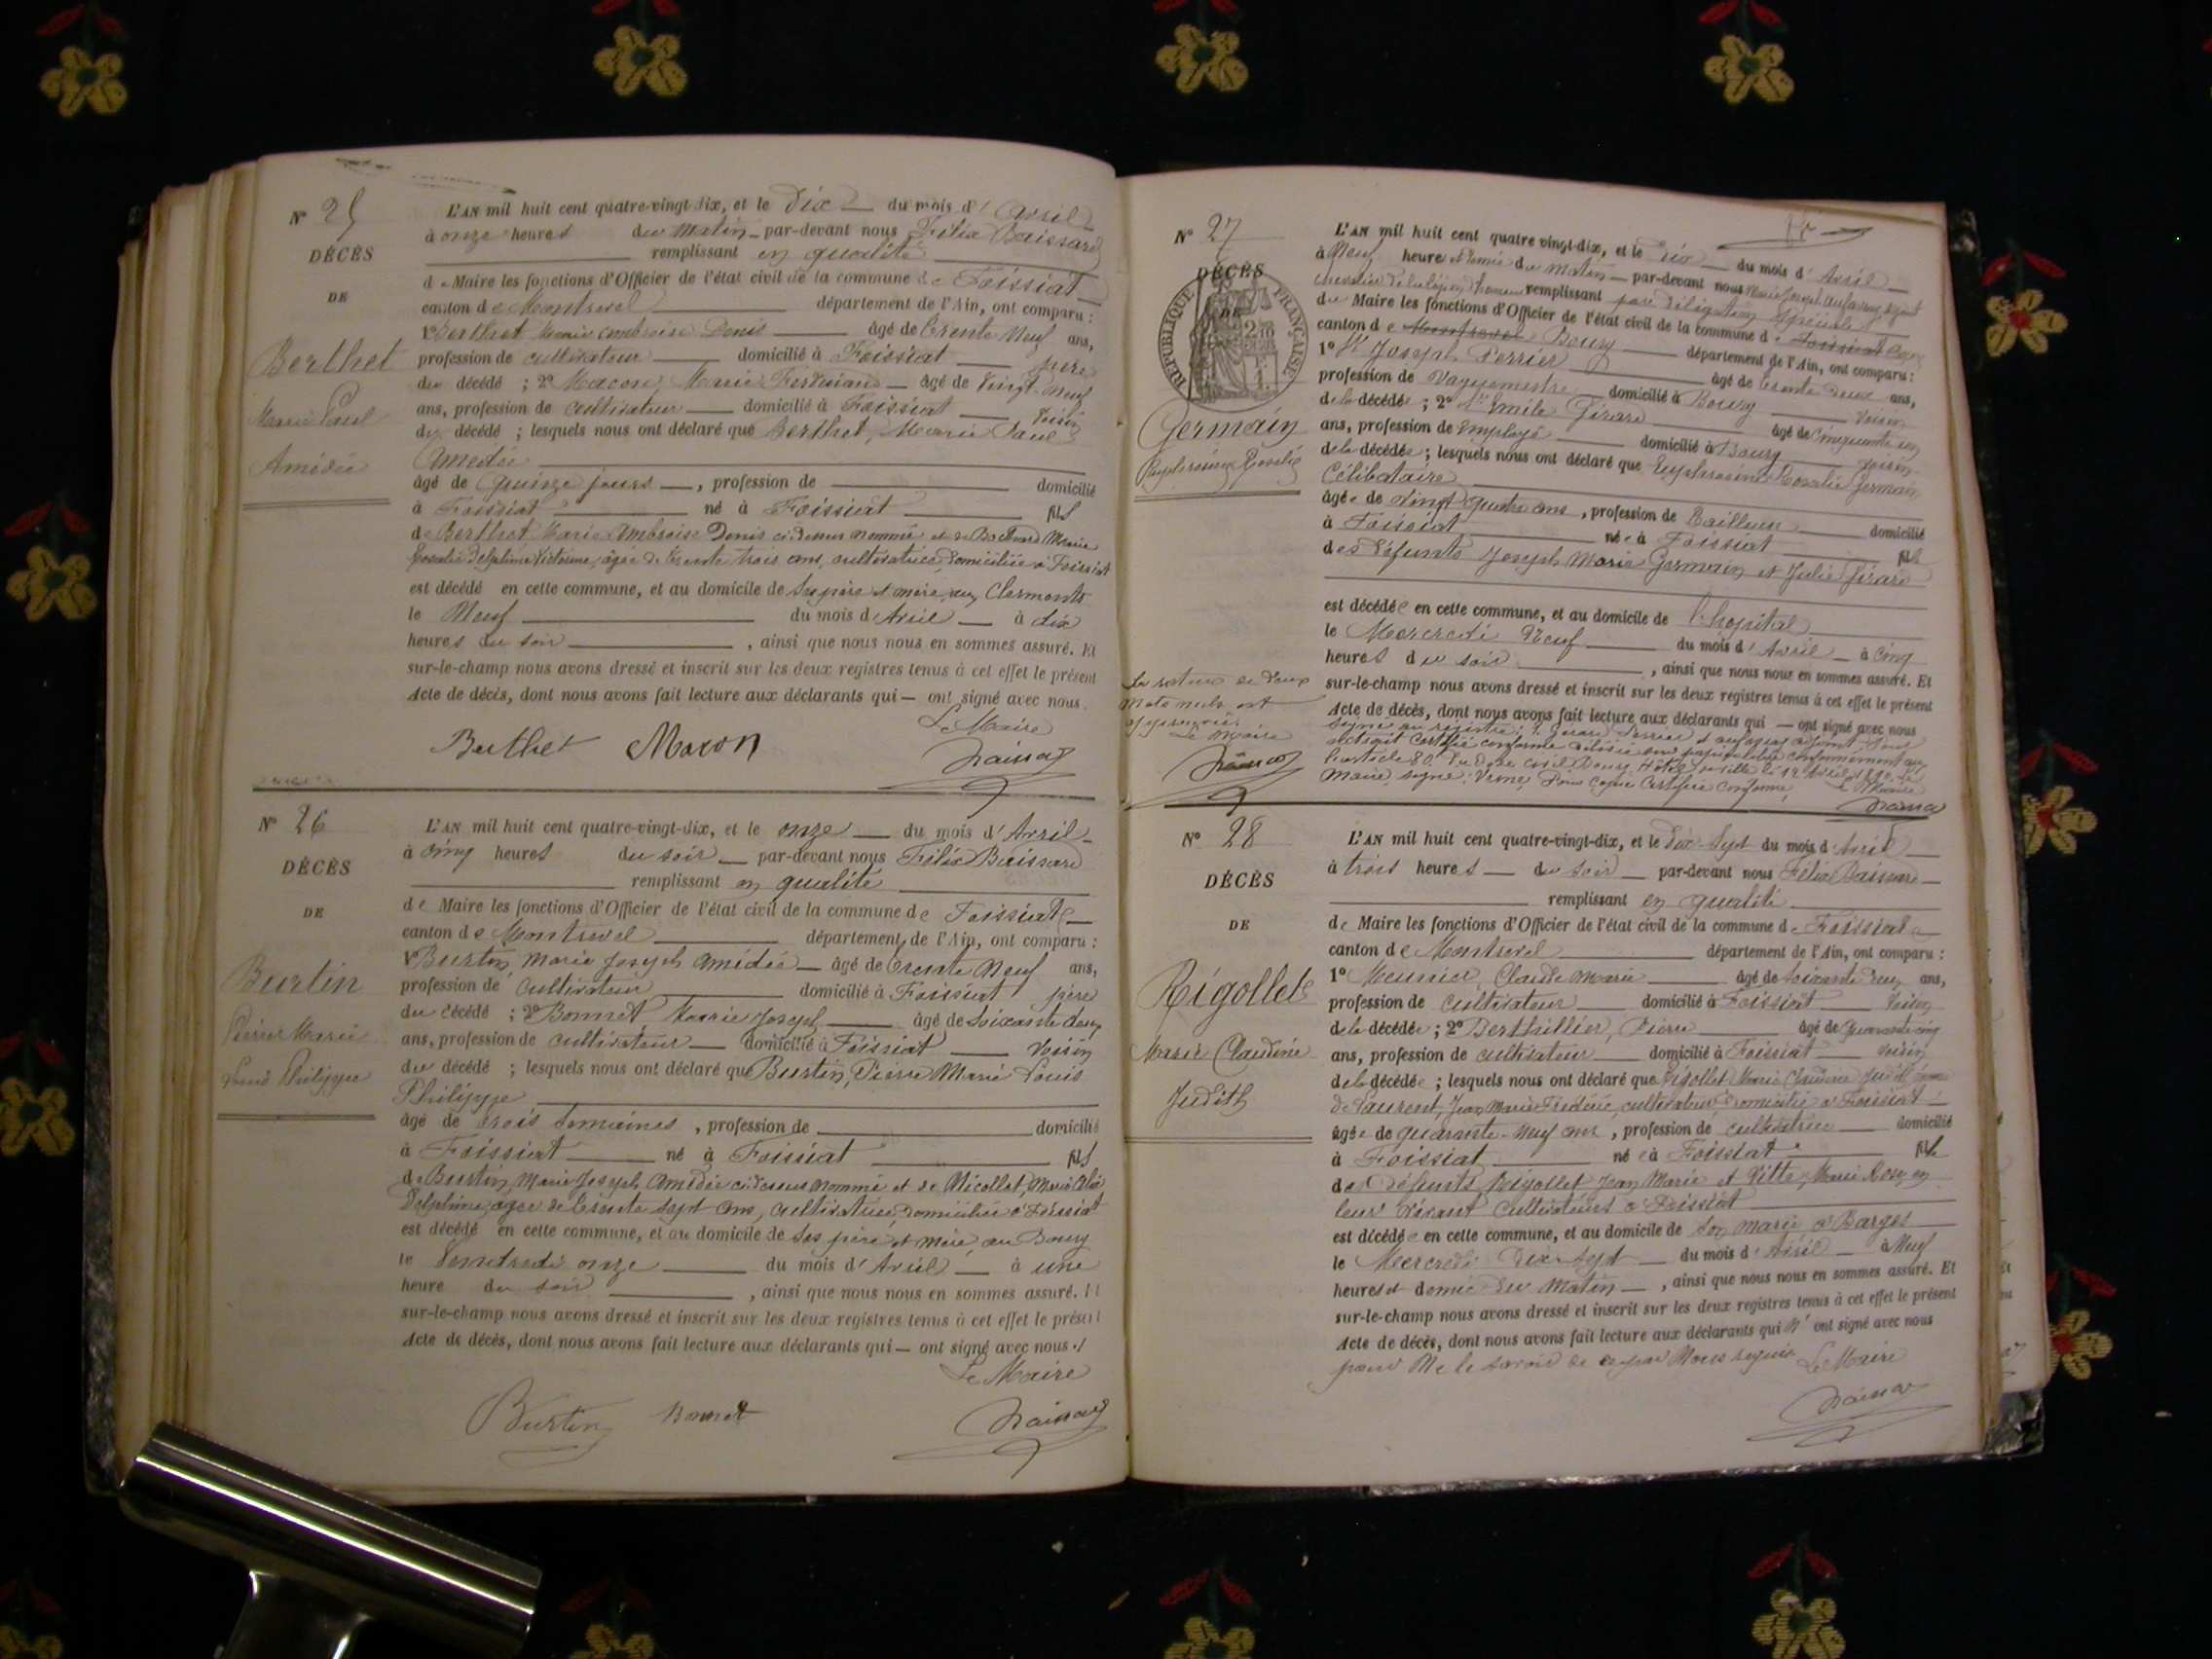 N° 25
DÉCÈS
DE
Berthet
Marie Paul
Amédée
L'AN mil huit cent quatre-vingt-dix, et le dix du mois d'Avril
à onze heures du Matin par-devant nous Félix Baissard
remplissant en qualité
de Maire les fonctions d'Officier de l'état civil de la commune de Foissiat
canton de Montrevel département de l'Ain, ont comparu :
1° Berthet Marie Ambroise Denis âgé de trente Neuf ans,
profession de cultivateur domicilié à Foissiat père
du décédé ; 2° Macon, Marie Ferdinand âgé de vingt-neuf
ans, profession de cultivateur domicilié à Foissiat Voisin
du décédé ; lesquels nous ont déclaré que Berthet, Marie Paul
Amédée
âgé de quinze jours, profession de domicilié
à Foissiat né à Foissiat fils
de Berthet Marie Ambroise Denis ci-dessus nommé et de Marie
Rosalie Delphine Victorine, âgée de trente trois ans, cultivatrice, domiciliée à Foissiat
est décédé en cette commune, et au domicile de ses père et mère, aux Clermonts
le Neuf du mois d'Avril à dix
heures du soir, ainsi que nous nous en sommes assuré. Et
sur-le-champ nous avons dressé et inscrit sur les deux registres tenus à cet effet le présent
Acte de décès, dont nous avons fait lecture aux déclarants qui — ont signé avec nous.
Le Maire
Berthet Macon
N° 26
DÉCÈS
DE
Burtin
Pierre Marie
Louis Philippe
L'AN mil huit cent quatre-vingt-dix, et le onze du mois d'Avril
à cinq heures du soir par-devant nous Félix Baissard
remplissant en qualité
de Maire les fonctions d'Officier de l'état civil de la commune de Foissiat
canton de Montrevel département de l'Ain, ont comparu :
1° Burtin, Marie Joseph Amédée âgé de trente Neuf ans,
profession de cultivateur domicilié à Foissiat père
du décédé ; 2° Bonnet, Marie Joseph âgé de soixante deux
ans, profession de cultivateur domicilié à Foissiat Voisin
du décédé ; lesquels nous ont déclaré que Burtin, Pierre Marie Louis
Philippe
âgé de trois semaines, profession de domicilié
à Foissiat né à Foissiat fils
de Burtin, Marie Joseph Amédée ci-dessus nommé et de Nicollet, Marie
Delphine, âgée de trente sept ans, cultivatrice, domiciliée à Foissiat
est décédé en cette commune, et au domicile de ses père et mère, au Bourg
le Vendredi onze du mois d'Avril à une
heure du soir, ainsi que nous nous en sommes assuré. Et
sur-le-champ nous avons dressé et inscrit sur les deux registres tenus à cet effet le présent
Acte de décès, dont nous avons fait lecture aux déclarants qui — ont signé avec nous
Le Maire
Burtin Bonnet
N° 27
DÉCÈS
DE
RÉPUBLIQUE FRANÇAISE
Germain
Euphrosine Rosalie
L'AN mil huit cent quatre-vingt-dix, et le dix du mois d'Avril
à Neuf heure et demie du matin par-devant nous
chevalier de la légion d'honneur remplissant par délégation spéciale
du Maire les fonctions d'Officier de l'état civil de la commune de Foissiat Bourg
canton de Montrevel Bourg département de l'Ain, ont comparu :
1° Joseph Perrier âgé de trente deux ans,
profession de Vaguemestre domicilié à Bourg Voisin
de la décédée ; 2° Emile Girard âgé de cinquante un
ans, profession de Employé domicilié à Bourg voisin
de la décédée ; lesquels nous ont déclaré que Euphrosine Rosalie Germain
Célibataire
âgée de vingt quatre ans, profession de Tailleuse domicilié
à Foissiat née à Foissiat fille
des défunts Joseph Marie Germain et Julie Girard
est décédée en cette commune, et au domicile de l'hôpital
le Mercredi Neuf du mois d'Avril à cinq
heures du soir, ainsi que nous nous en sommes assuré. Et
sur-le-champ nous avons dressé et inscrit sur les deux registres tenus à cet effet le présent
Acte de décès, dont nous avons fait lecture aux déclarants qui — ont signé avec nous
La rature de deux
mots nuls est
approuvée
Le Maire
Maire, signé : Verne, Pour copie certifiée conforme,
Le Maire
N° 28
DÉCÈS
DE
Rigollet
Marie Claudine
Judith
L'AN mil huit cent quatre-vingt-dix, et le dix-sept du mois d'Avril
à trois heures du soir par-devant nous Félix Baissard
remplissant en qualité
de Maire les fonctions d'Officier de l'état civil de la commune de Foissiat
canton de Montrevel département de l'Ain, ont comparu :
1° Meunier, Claude Marie âgé de soixante deux ans,
profession de cultivateur domicilié à Foissiat Voisin
de la décédée ; 2° Berthillier, Pierre âgé de quarante cinq
ans, profession de cultivateur domicilié à Foissiat voisin
de la décédée ; lesquels nous ont déclaré que Rigollet Marie Claudine Judith
de Laurent, Jean Marie Frédéric, cultivateur domicilié à Foissiat
âgée de quarante-neuf ans, profession de cultivatrice domicilié
à Foissiat née à Foissiat fille
des défunts Rigollet Jean Marie et Vitte, Marie Rose, en
leur vivant cultivateurs à Foissiat
est décédée en cette commune, et au domicile de son mari à Barges
le Mercredi Dix-Sept du mois d'Avril à Neuf
heures et demie du matin, ainsi que nous nous en sommes assuré. Et
sur-le-champ nous avons dressé et inscrit sur les deux registres tenus à cet effet le présent
Acte de décès, dont nous avons fait lecture aux déclarants qui n'ont signé avec nous
pour ne le savoir de ce par nous requis Le Maire